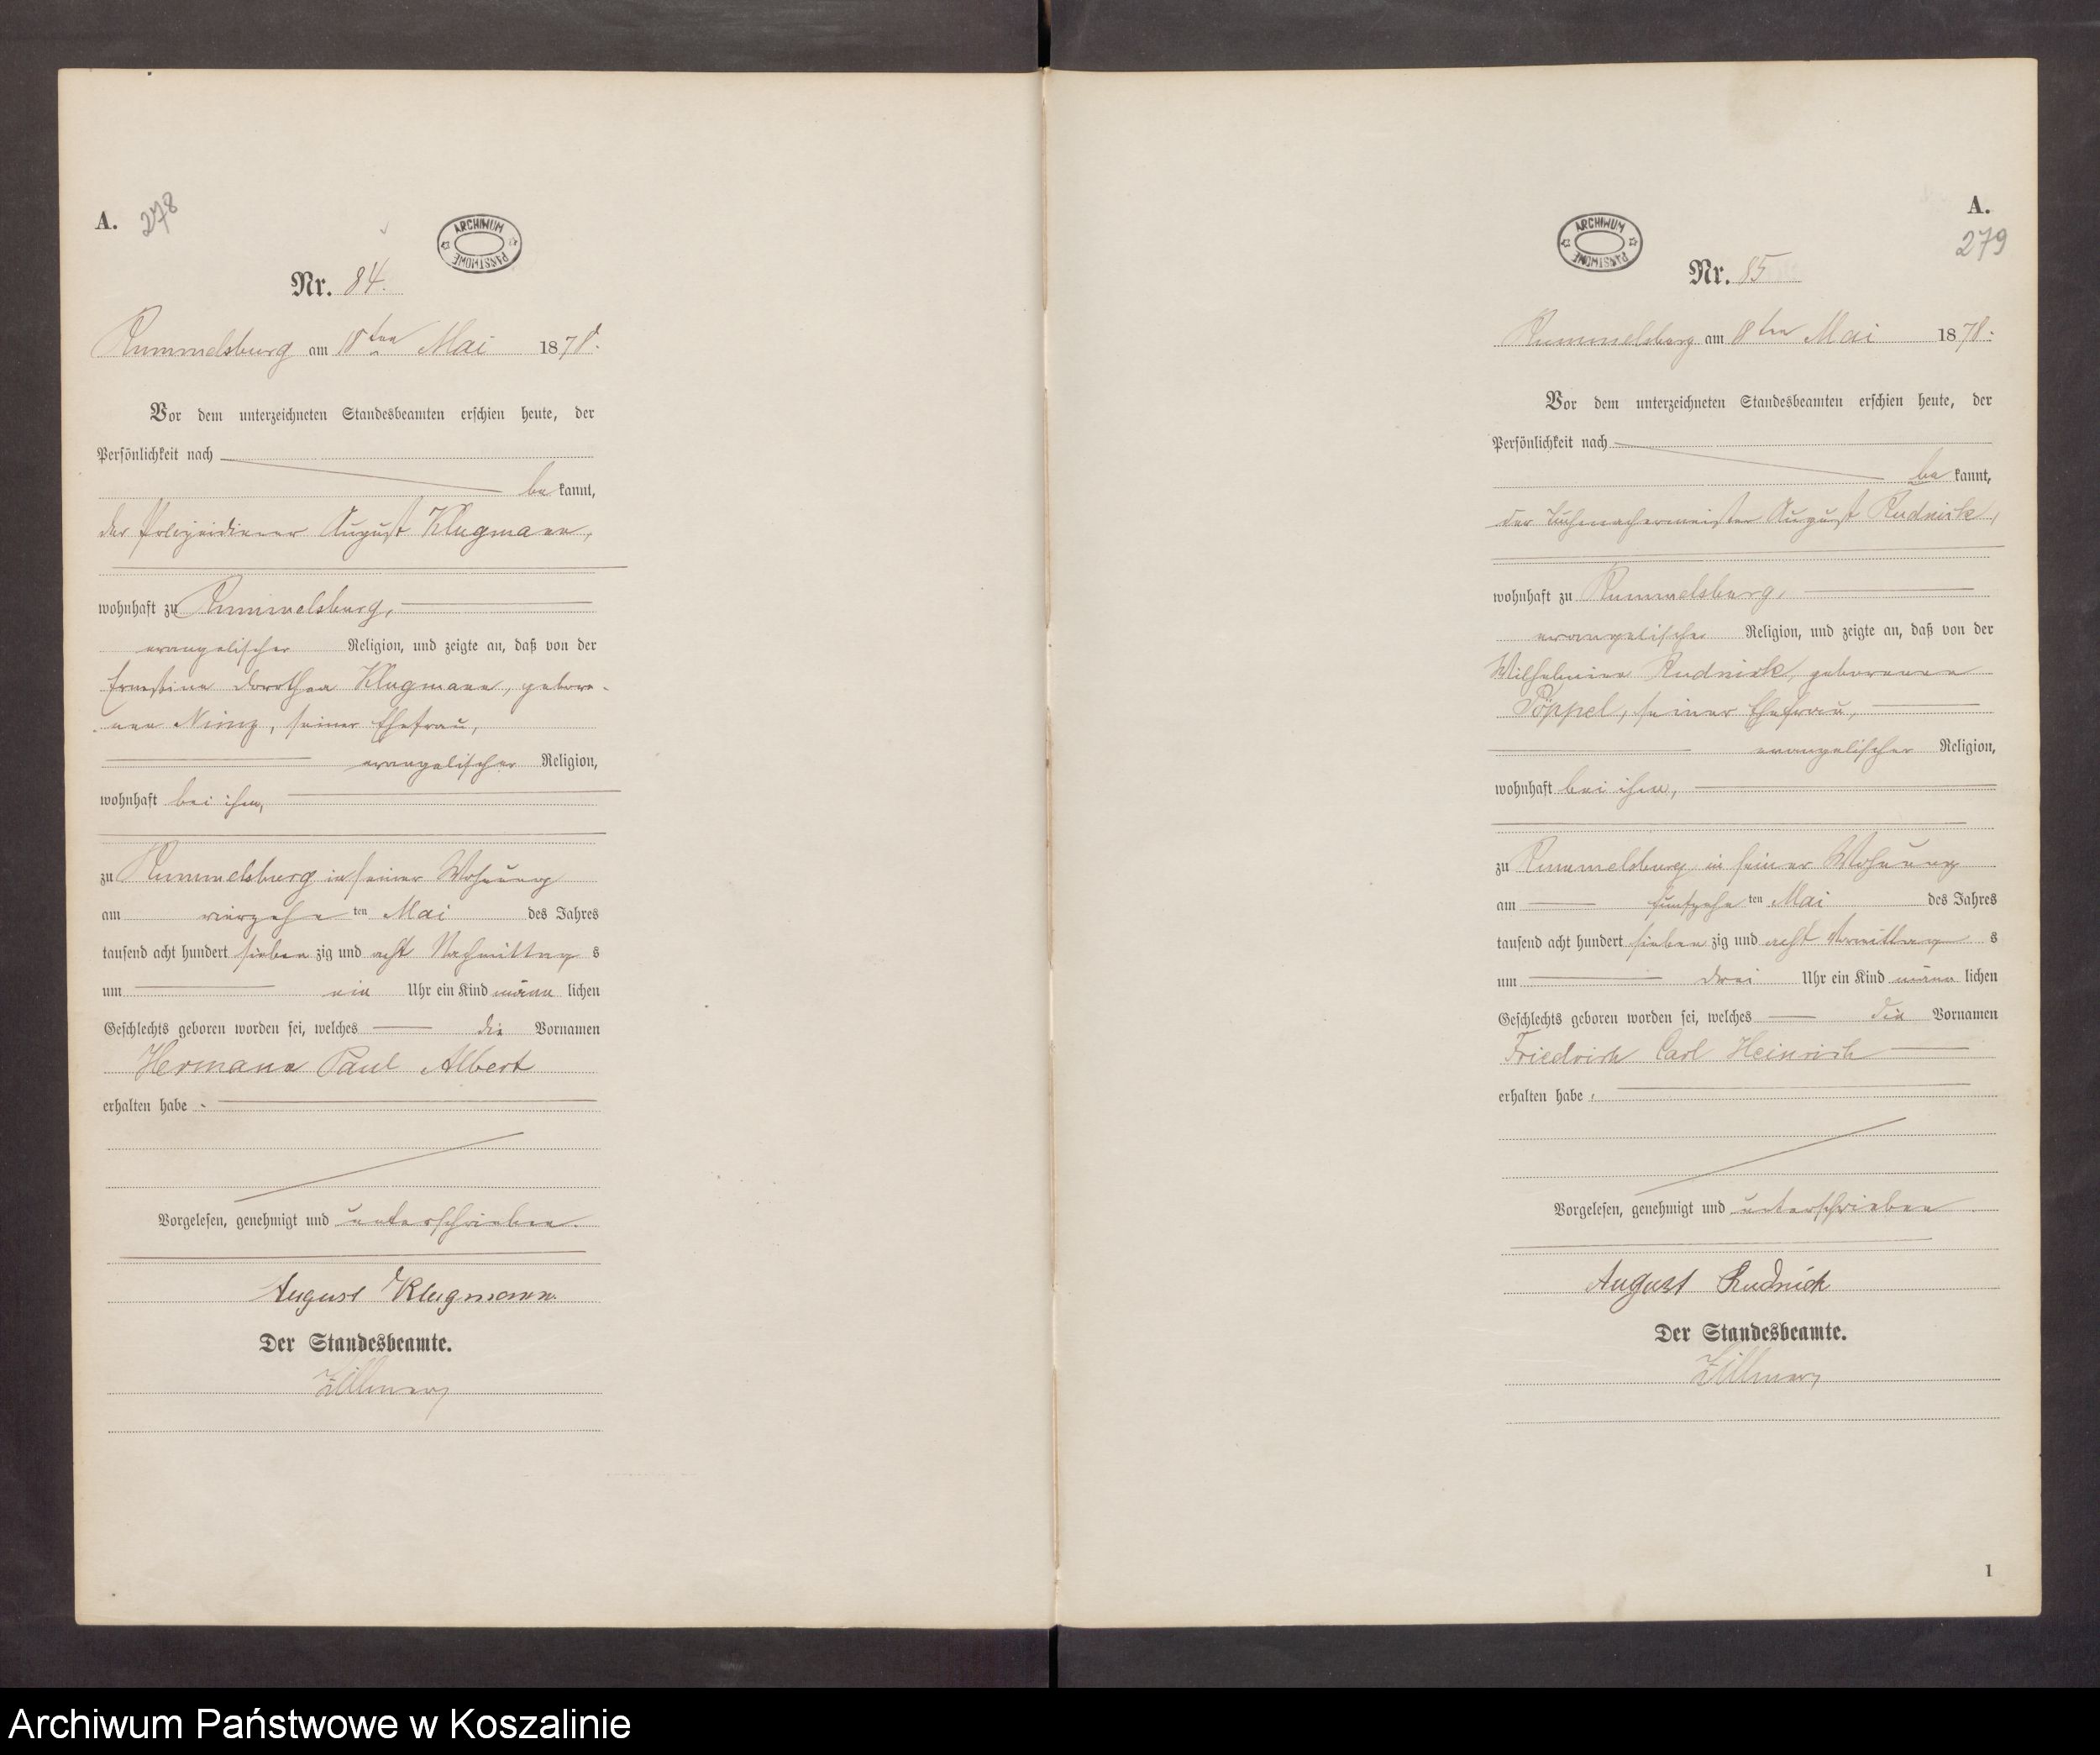 A. 278
ARCHIWUM PAŃSTWOWE
Nr. 84.
Rummelsburg am 18ten Mai 1878.
Vor dem unterzeichneten Standesbeamten erschien heute, der
Persönlichkeit nach
be kannt,
der Polizeidiener August Klugmann,
wohnhaft zu Rummelsburg,
evangelischer Religion, und zeigte an, daß von der
Ernestine Dorothea Klugmann, gebore-
nen Nimz, seiner Ehefrau,
evangelischer Religion,
wohnhaft bei ihm,
zu Rummelsburg in seiner Wohnung
am vierzehn ten Mai des Jahres
tausend acht hundert sieben zig und acht Nachmittag s
um ein Uhr ein Kind männ lichen
Geschlechts geboren worden sei, welches die Vornamen
Hermann Paul Albert
erhalten habe.
Vorgelesen, genehmigt und unterschrieben.
August Klugmann.
Der Standesbeamte.
Zillmer
A.
279
ARCHIWUM PAŃSTWOWE
Nr. 85
Rummelsburg am 18ten Mai 1878.
Vor dem unterzeichneten Standesbeamten erschien heute, der
Persönlichkeit nach
be kannt,
der Tuchmachermeister August Rudnick,
wohnhaft zu Rummelsburg,
evangelischer Religion, und zeigte an, daß von der
Wilhelmine Rudnick, geborenen
Pöppel, seiner Ehefrau,
evangelischer Religion,
wohnhaft bei ihm,
zu Rummelsburg in seiner Wohnung
am funfzehn ten Mai des Jahres
tausend acht hundert sieben zig und acht Vormittag s
um drei Uhr ein Kind männ lichen
Geschlechts geboren worden sei, welches die Vornamen
Friedrich Carl Heinrich
erhalten habe.
Vorgelesen, genehmigt und unterschrieben
August Rudnick
Der Standesbeamte.
Zillmer
1
Archiwum Państwowe w Koszalinie